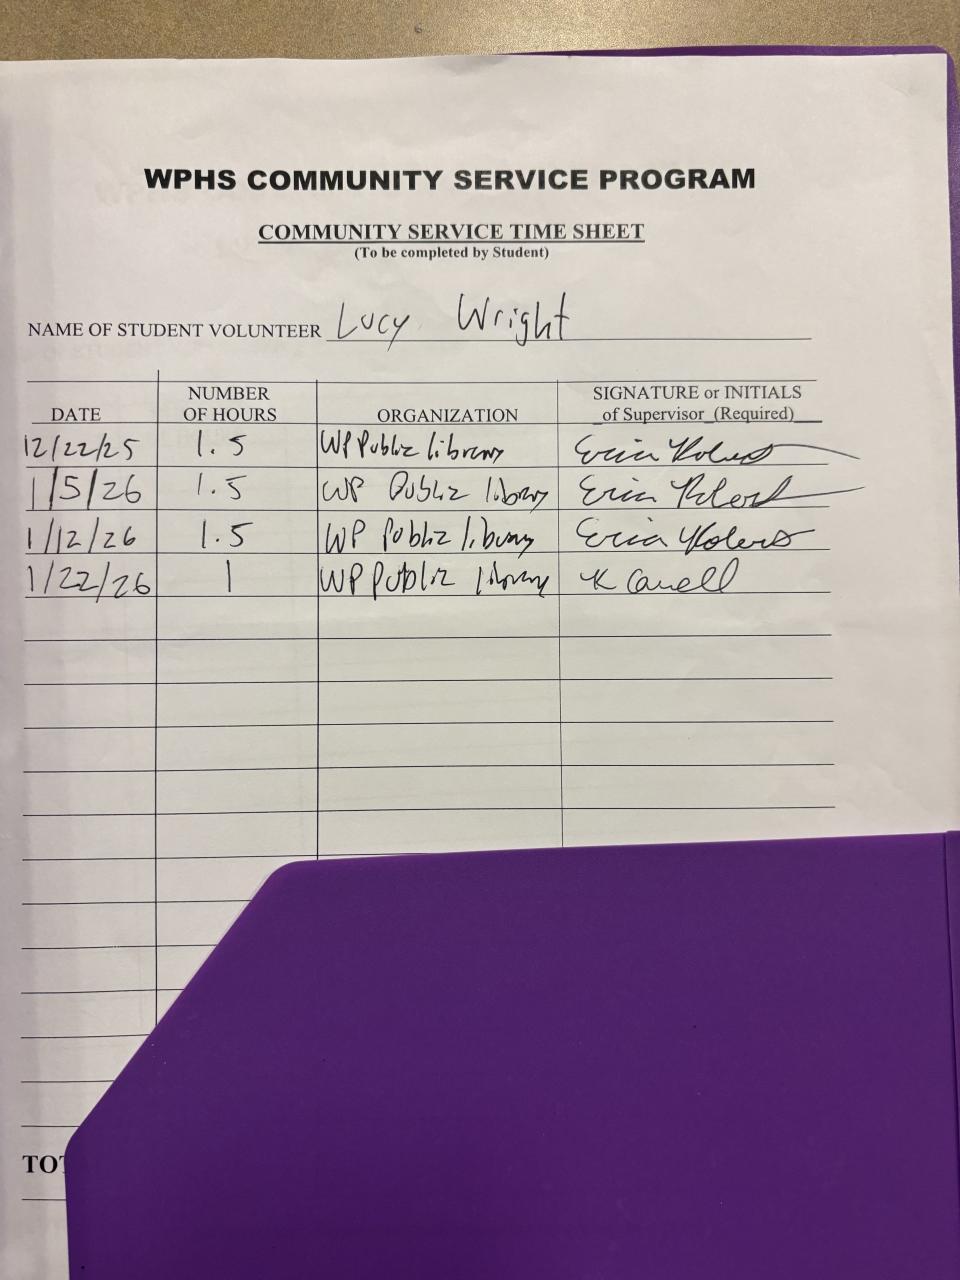 WPHS COMMUNITY SERVICE PROGRAM
COMMUNITY SERVICE TIME SHEET
(To be completed by Student)
NAME OF STUDENT VOLUNTEER Lucy Wright
DATE NUMBER OF HOURS ORGANIZATION SIGNATURE or INITIALS of Supervisor (Required)
12/22/25 1.5 WP Public library Erica
1/5/26 1.5 WP Public library Erica
1/12/26 1.5 WP Public library Erica
1/22/26 1 WP Public library K
TOT